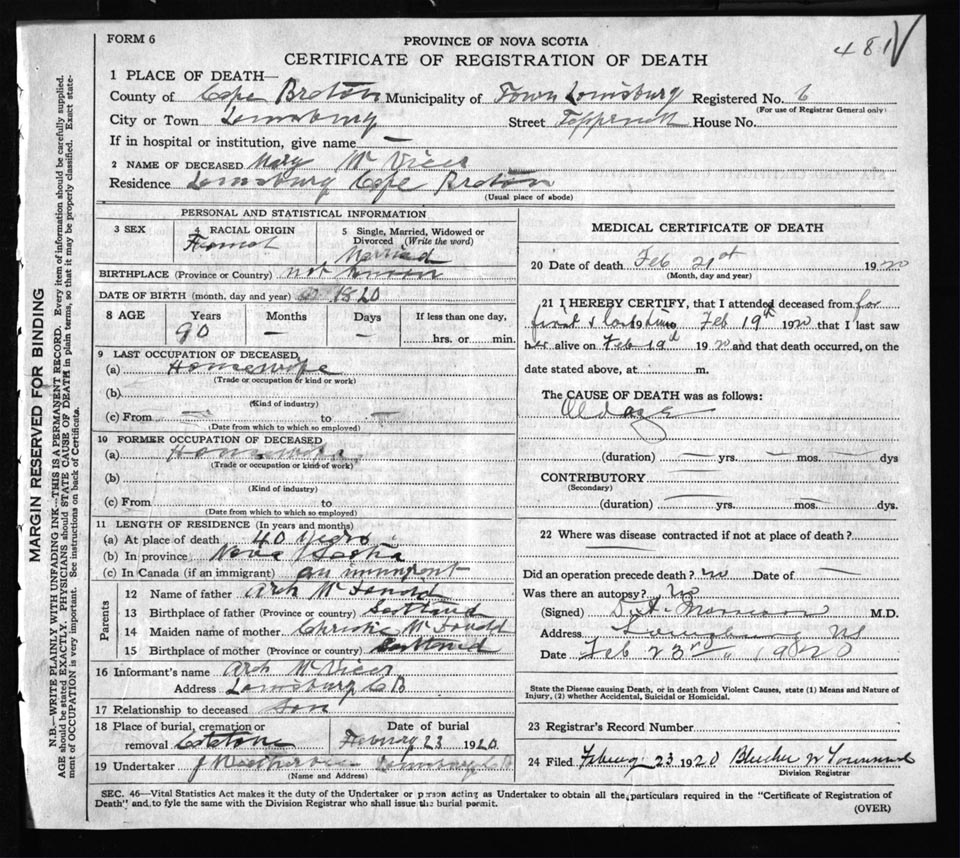 481
FORM 6
PROVINCE OF NOVA SCOTIA
CERTIFICATE OF REGISTRATION OF DEATH
1 PLACE OF DEATH—
County of Cape Breton Municipality of Town Louisburg Registered No. 6
(For use of Registrar General only)
City or Town Louisburg Street House No.
If in hospital or institution, give name —
2 NAME OF DECEASED Mary Mc Vicar
Residence Louisburg Cape Breton
(Usual place of abode)
PERSONAL AND STATISTICAL INFORMATION
3 SEX
4 RACIAL ORIGIN
5 Single, Married, Widowed or Divorced (Write the word)
Femal
Married
BIRTHPLACE (Province or Country) not known
DATE OF BIRTH (month, day and year) 1820
8 AGE
Years
Months
Days
If less than one day,
90
—
—
hrs. or min.
9 LAST OCCUPATION OF DECEASED
(a) Housewife
(Trade or occupation or kind or work)
(b)
(Kind of industry)
(c) From — to —
(Date from which to which so employed)
10 FORMER OCCUPATION OF DECEASED
(a) Housewife
(Trade or occupation or kind of work)
(b)
(Kind of industry)
(c) From to
(Date from which to which so employed)
11 LENGTH OF RESIDENCE (In years and months)
(a) At place of death 40 years
(b) In province Nova Scotia
(c) In Canada (if an immigrant) an
Parents
12 Name of father Arch Mc Donald
13 Birthplace of father (Province or country) Scotland
14 Maiden name of mother Christie Mc
15 Birthplace of mother (Province or country) Scotland
16 Informant's name Arch Mc Vicar
Address Louisburg C B
17 Relationship to deceased Son
18 Place of burial, cremation or removal
Date of burial
23 1920
19 Undertaker Louisburg C B
(Name and Address)
MEDICAL CERTIFICATE OF DEATH
20 Date of death Feb 21st 1920
(Month, day and year)
21 I HEREBY CERTIFY, that I attended deceased from for
first & last time Feb 19th 1920 that I last saw
her alive on Feb 19th 1920 and that death occurred, on the
date stated above, at m.
The CAUSE OF DEATH was as follows:
Old age
(duration) — yrs. — mos. — dys
CONTRIBUTORY —
(Secondary)
(duration) — yrs. — mos. — dys.
22 Where was disease contracted if not at place of death?
Did an operation precede death? no Date of —
Was there an autopsy? no
(Signed) M.D.
Address Louisburg NS
Date Feb 23rd 1920
State the Disease causing Death, or in death from Violent Causes, state (1) Means and Nature of
Injury, (2) whether Accidental, Suicidal or Homicidal.
23 Registrar's Record Number
24 Filed 23 1920
Division Registrar
SEC. 46—Vital Statistics Act makes it the duty of the Undertaker or person acting as Undertaker to obtain all the particulars required in the "Certificate of Registration of
Death" and to fyle the same with the Division Registrar who shall issue the burial permit.
(OVER)
MARGIN RESERVED FOR BINDING
N.B.—WRITE PLAINLY WITH UNFADING INK—THIS IS A PERMANENT RECORD. Every item of information should be carefully supplied.
AGE should be stated EXACTLY. PHYSICIANS should STATE CAUSE OF DEATH in plain terms, so that it may be properly classified. Exact state-
ment of OCCUPATION is very important. See instructions on back of Certificate.